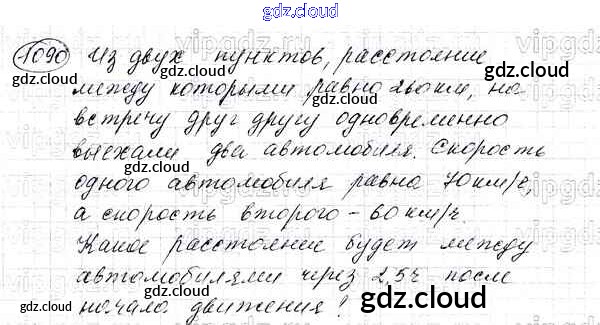 gdz.cloud
1090 Из двух пунктов, расстояние
между которыми равно 260 км, на
встречу друг другу одновременно
выехали два автомобиля. Скорость
одного автомобиля равна 70 км/ч,
а скорость второго – 60 км/ч.
Какое расстояние будет между
автомобилями через 2,5ч после
начала движения?
gdz.cloud